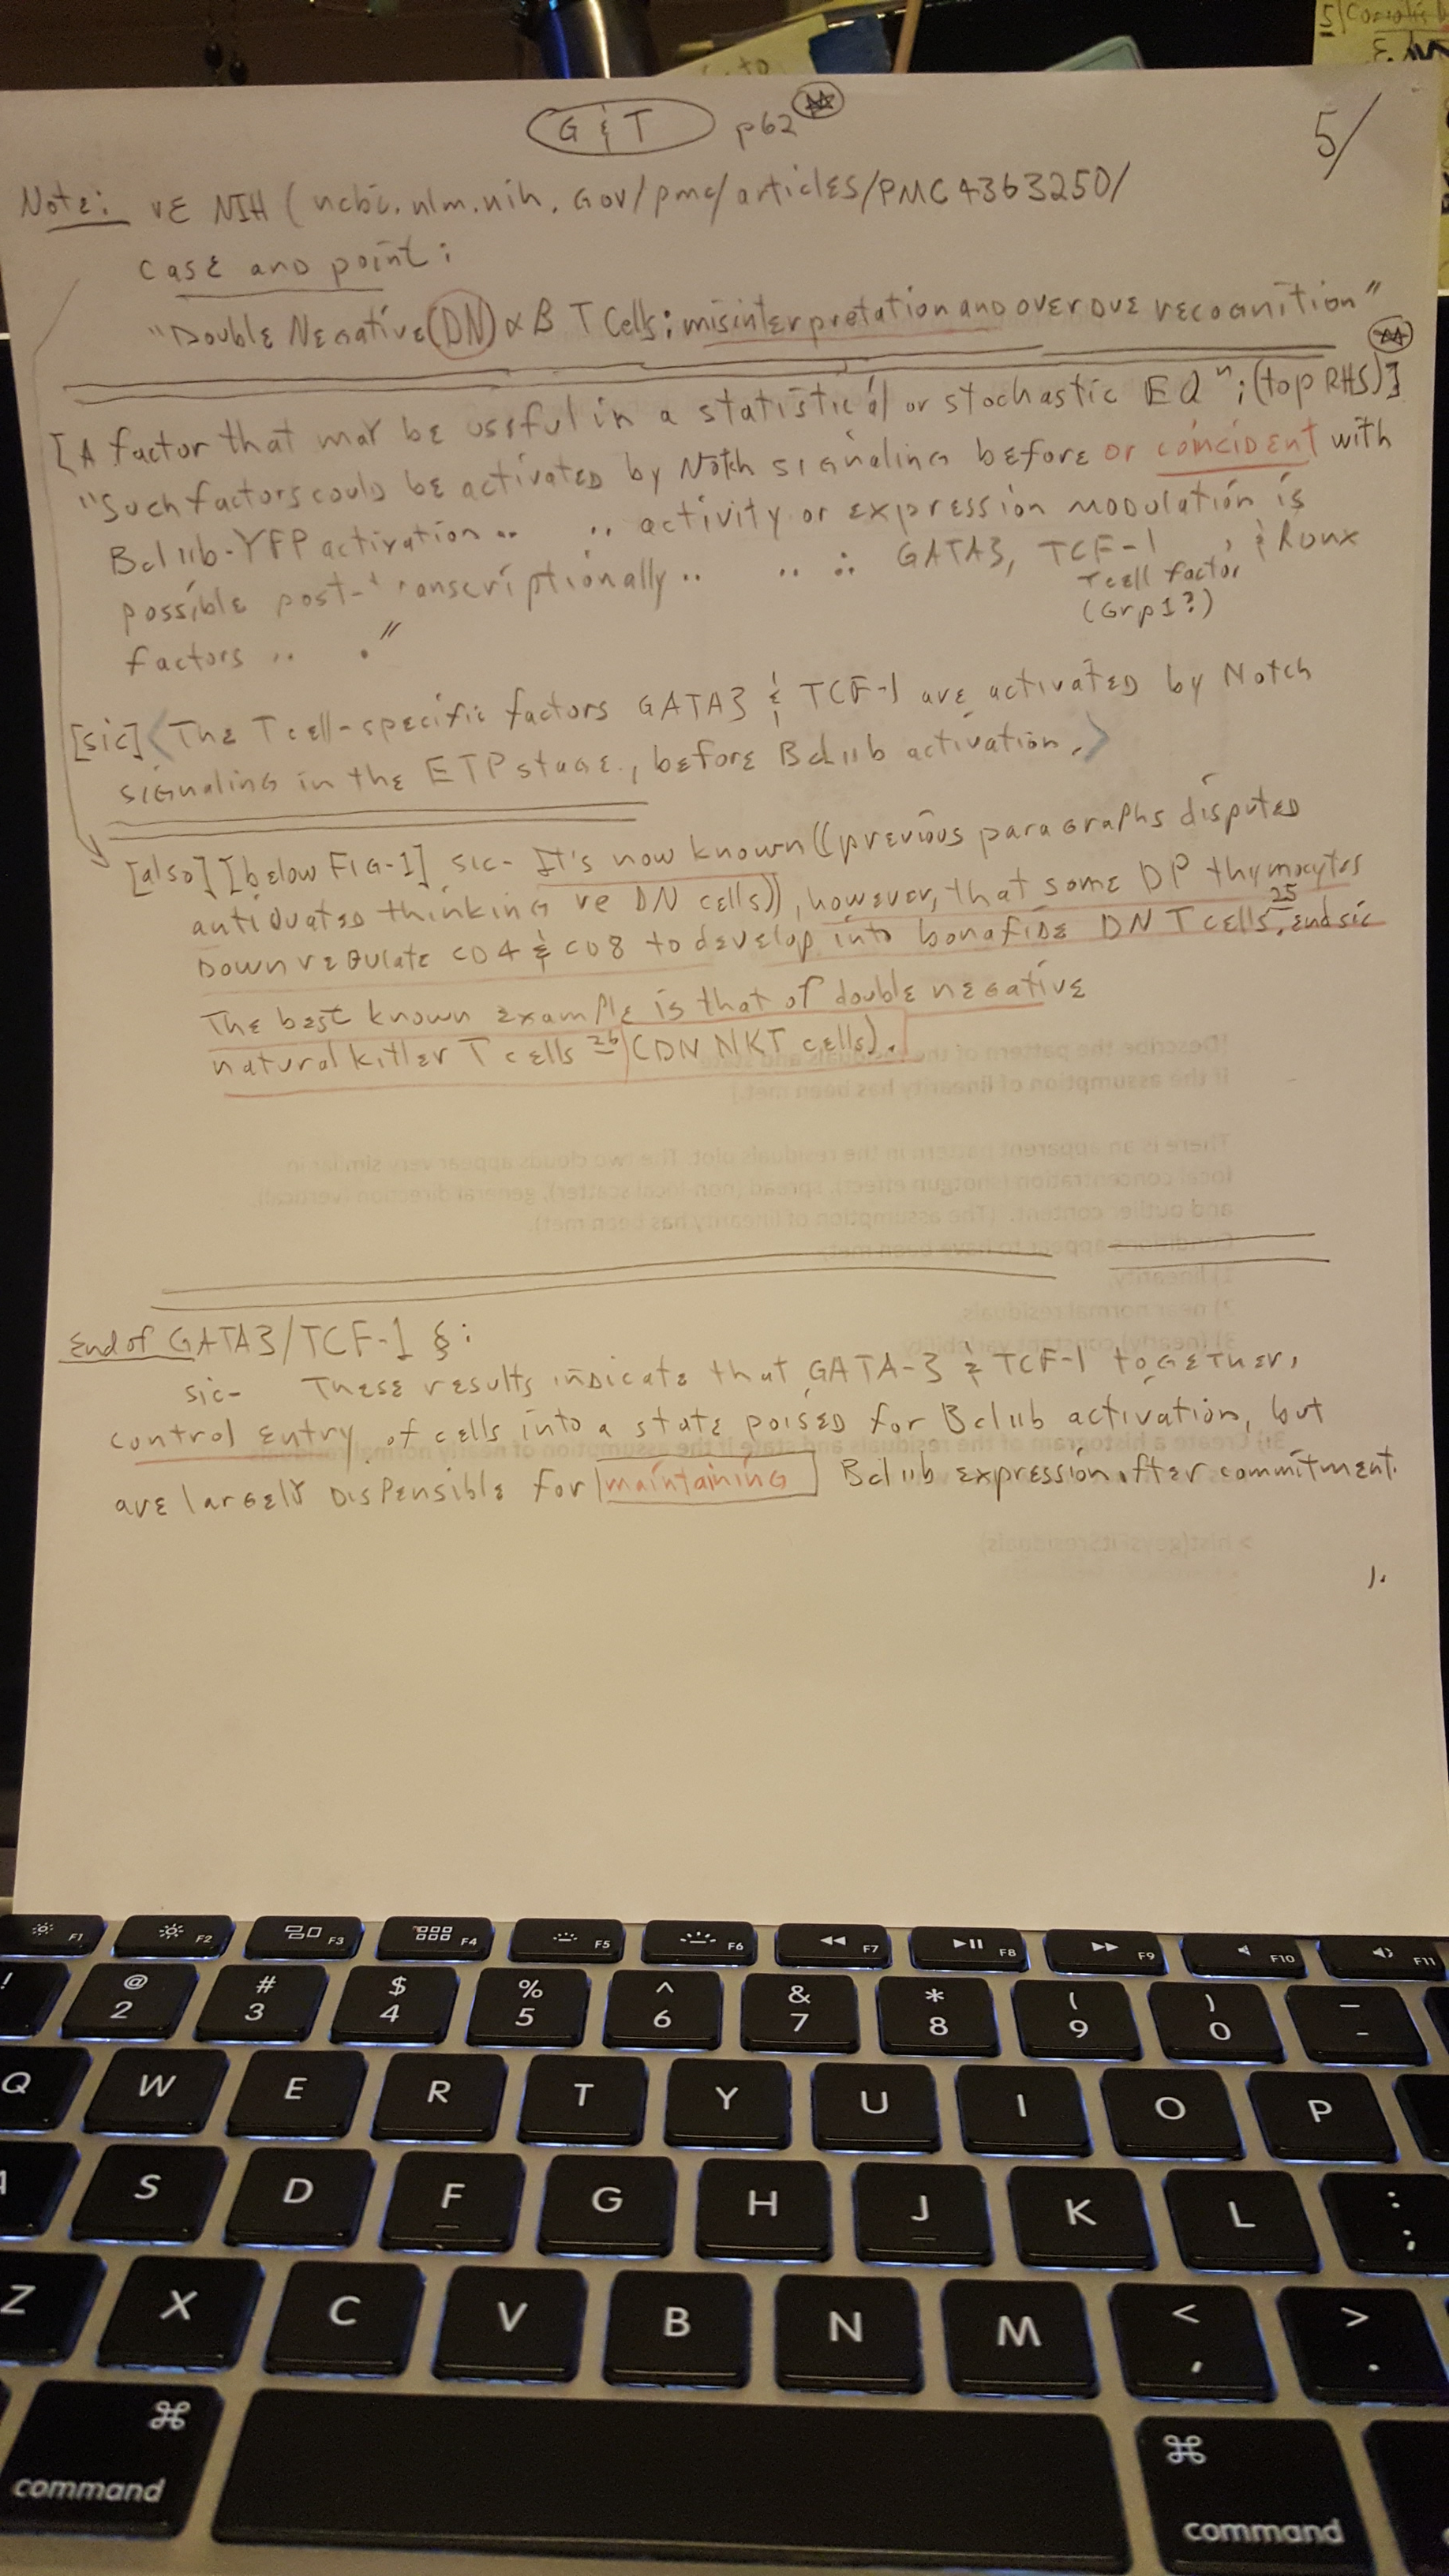 G & T p62
5/
Note: re NIH (ncbi.nlm.nih.Gov/pmc/articles/PMC4363250/
case and point:
"Double Negative (DN) αB T Cells: misinterpretation and overdue recognition"
[A factor that may be useful in a statistical or stochastic EQⁿ; (top RHS)]
"Such factors could be activated by Notch signaling before or coincident with
Bcl11b-YFP activation.. .. activity or expression modulation is
possible post-transcriptionally.. .. ∴ GATA3, TCF-1, & Runx
Tcell factor
(Grp1?)
factors .. ."
[sic] <The Tcell-specific factors GATA3 & TCF-1 are activated by Notch
signaling in the ETP stage, before Bcl11b activation.>
[also] [below FIG-1] sic- It's now known ((previous paragraphs disputed
antiquated thinking re DN cells)), however, that some DP thymocytes
Down regulate CD4 & CD8 to develop into bonafide DN T cells,25 end sic
The best known example is that of double negative
natural killer T cells 26 (DN NKT cells).
End of GATA3/TCF-1 §:
sic- These results indicate that GATA-3 & TCF-1 together,
control entry of cells into a state poised for Bcl11b activation, but
are largely dispensible for maintaining Bcl11b expression after commitment.
1.
F1 F2 F3 F4 F5 F6 F7 F8 F9 F10 F11
! @ # $ % ^ & * ( ) _
2 3 4 5 6 7 8 9 0 -
Q W E R T Y U I O P
A S D F G H J K L : ;
Z X C V B N M < , > .
⌘ ⌘
command command